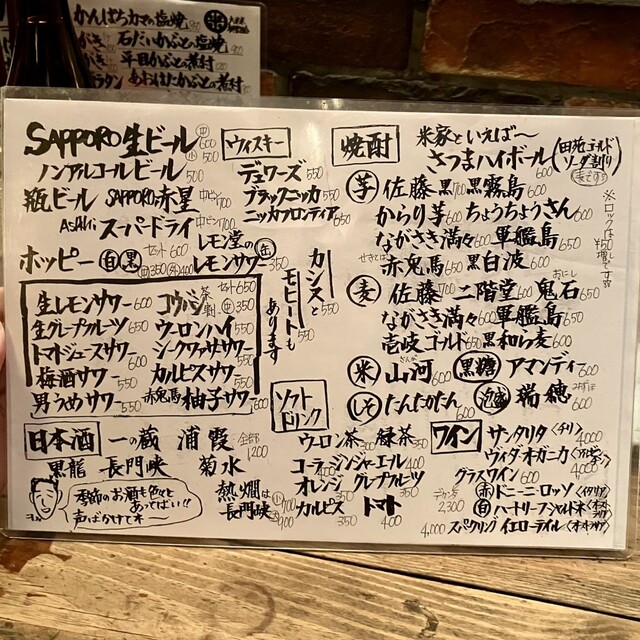 かんぱちカマの塩焼
石だいかぶとの塩焼
平目かぶとの煮付
あおはたかぶとの煮付
SAPPORO 生ビール 中600 小500
ノンアルコールビール 500
瓶ビール SAPPORO赤星 中ビン700
ASAHI スーパードライ 中ビン700
ホッピー 白 黒 セット600 中350 外400
レモン堂のレモンサワー 缶 350
生レモンサワー 600
生グレープフルーツ 650
トマトジュースサワー 600
梅酒サワー 550
男うめサワー 550
セット650
ウーロンハイ 550
シークヮサーサワー 550
カルピスサワー 550
赤鬼馬 柚子サワー 550
ウィスキー
デュワーズ 550
ブラックニッカ 550
ニッカフロンティア 650
カシスと 550
モヒートも 550
あります
焼酎
米家といえば〜
さつまハイボール 600
田苑ゴールドソーダ割り
麦ですヨ
※ロックは¥50増です
芋 佐藤黒 700 黒霧島 600
からり芋 600 ちょうちょうさん 600
ながさき満々 600 軍艦島 650
赤兎馬 650 黒白波 600
麦 佐藤 700 二階堂 600 鬼石 650
ながさき満々 600 軍艦島 650
壱岐ゴールド 650 黒和ら麦 600
米 山河 600 黒糖 アマンディー 600
しそ たんたかたん 600 泡盛 瑞穂 600
日本酒
一の蔵 浦霞 全部1200
黒龍 長門峡 菊水
熱燗は長門峡 小700 大900
季節のお酒も色々とあってぱい!!
声ばかけてネ〜
ソフトドリンク
ウーロン茶 300 緑茶 350
コーラ ジンジャーエール 400
オレンジ グレープフルーツ 350
カルピス 350 トマト 400
ワイン
サンタリタ <チリ> 4000
ヴィダ・オーガニカ 4000
グラスワイン 600
デカンタ 2,300
赤 ドニーニ・ロッソ <イタリア>
白 ハートリーフシャルドネ
4,000 スパークリング イエローテイル